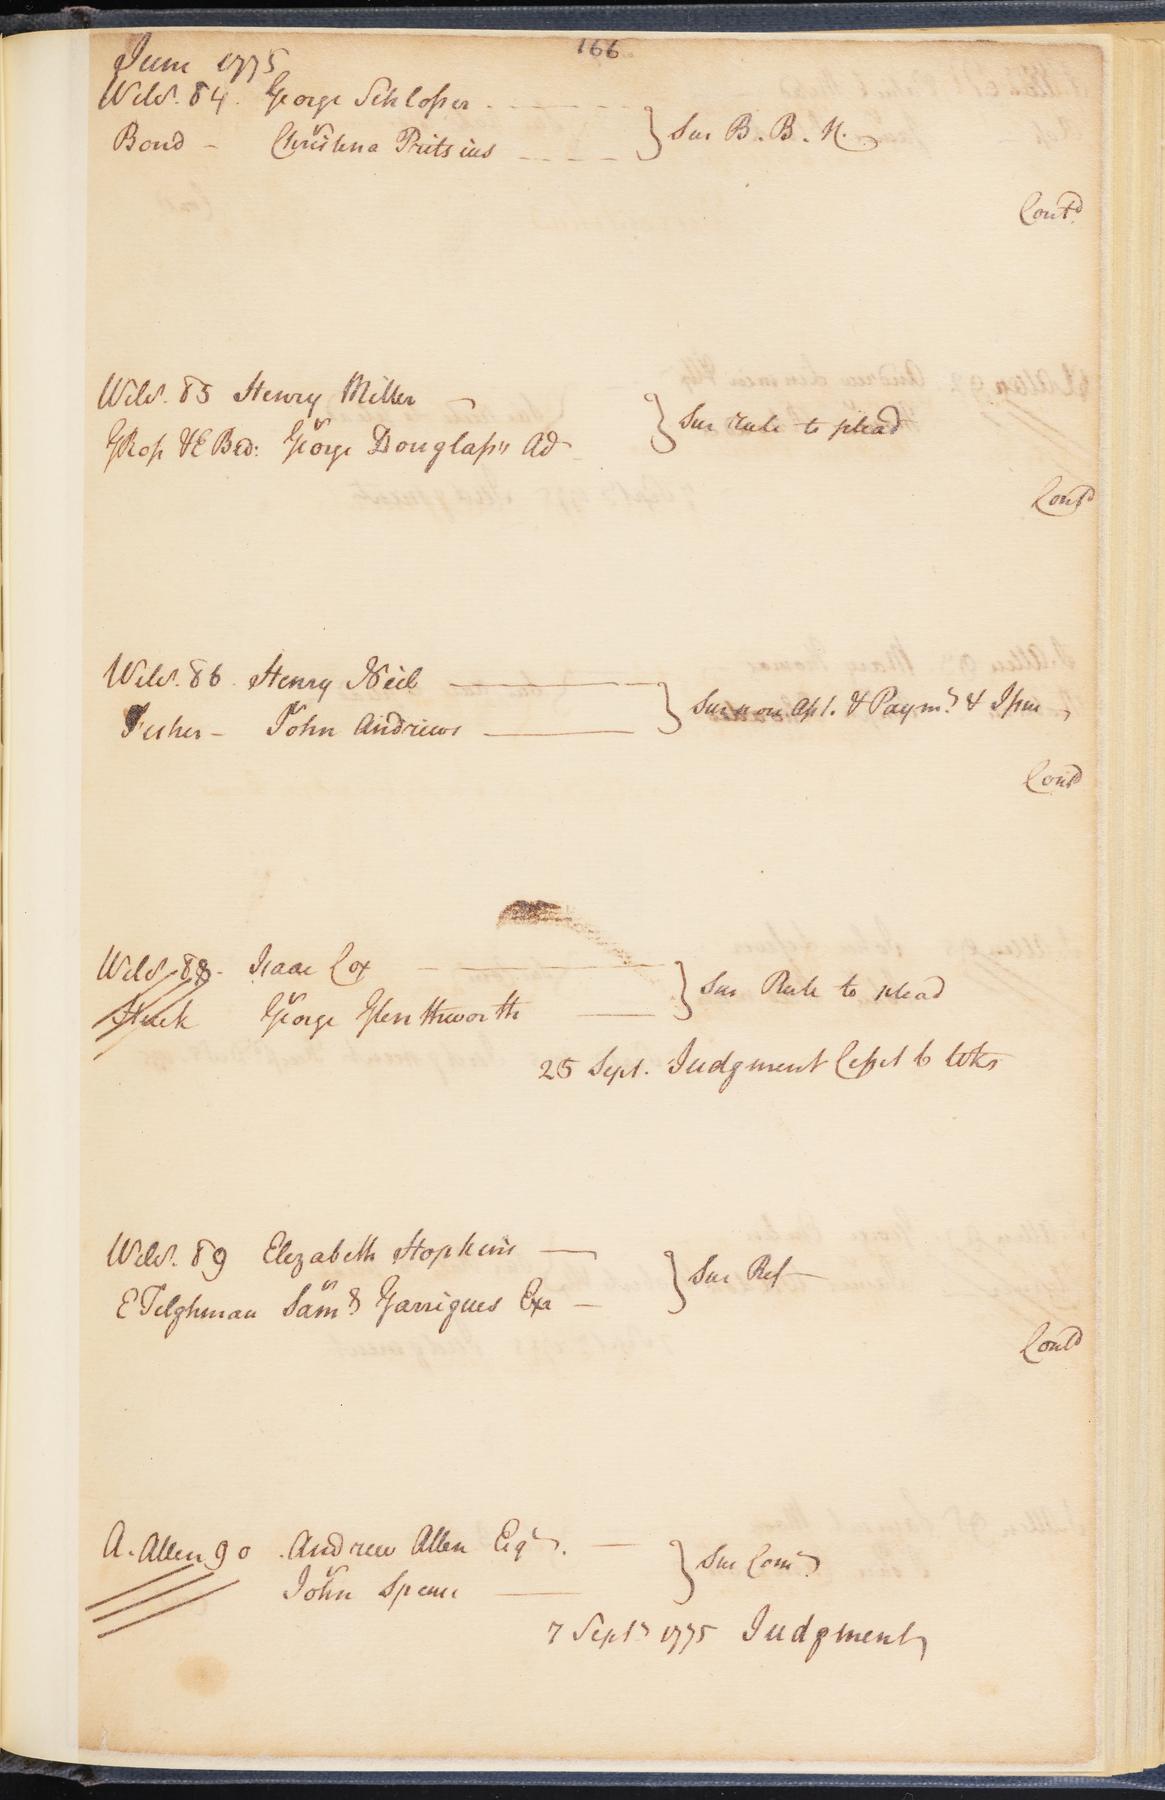 166
June 1775
Wils. 84. George Schlosser
Bond - vs Christina Pritsius } Sur B. B. N.
Contd
Wils. 85 Henry Miller
GRoss & E Bid: vs George Douglass" Ad } Sur rule to plead
Contd
Wils. 86 Henry Neil
Fisher - vs John Andrews } Sur non Asst. & Paymt. & Issue
Contd
Wils. 88 - Isaac Cox
vs George Glenthworth } Sur Rule to plead
25 Sept. Judgment Cesset 6 Wks
Wils. 89 Elizabeth Hopkins
E Tilghman vs Saml Garrigues Exr } Sur Ref
Contd
A. Allen 90 Andrew Allen Esqr.
vs John Spence } Sur
7 Septr 1775 Judgment